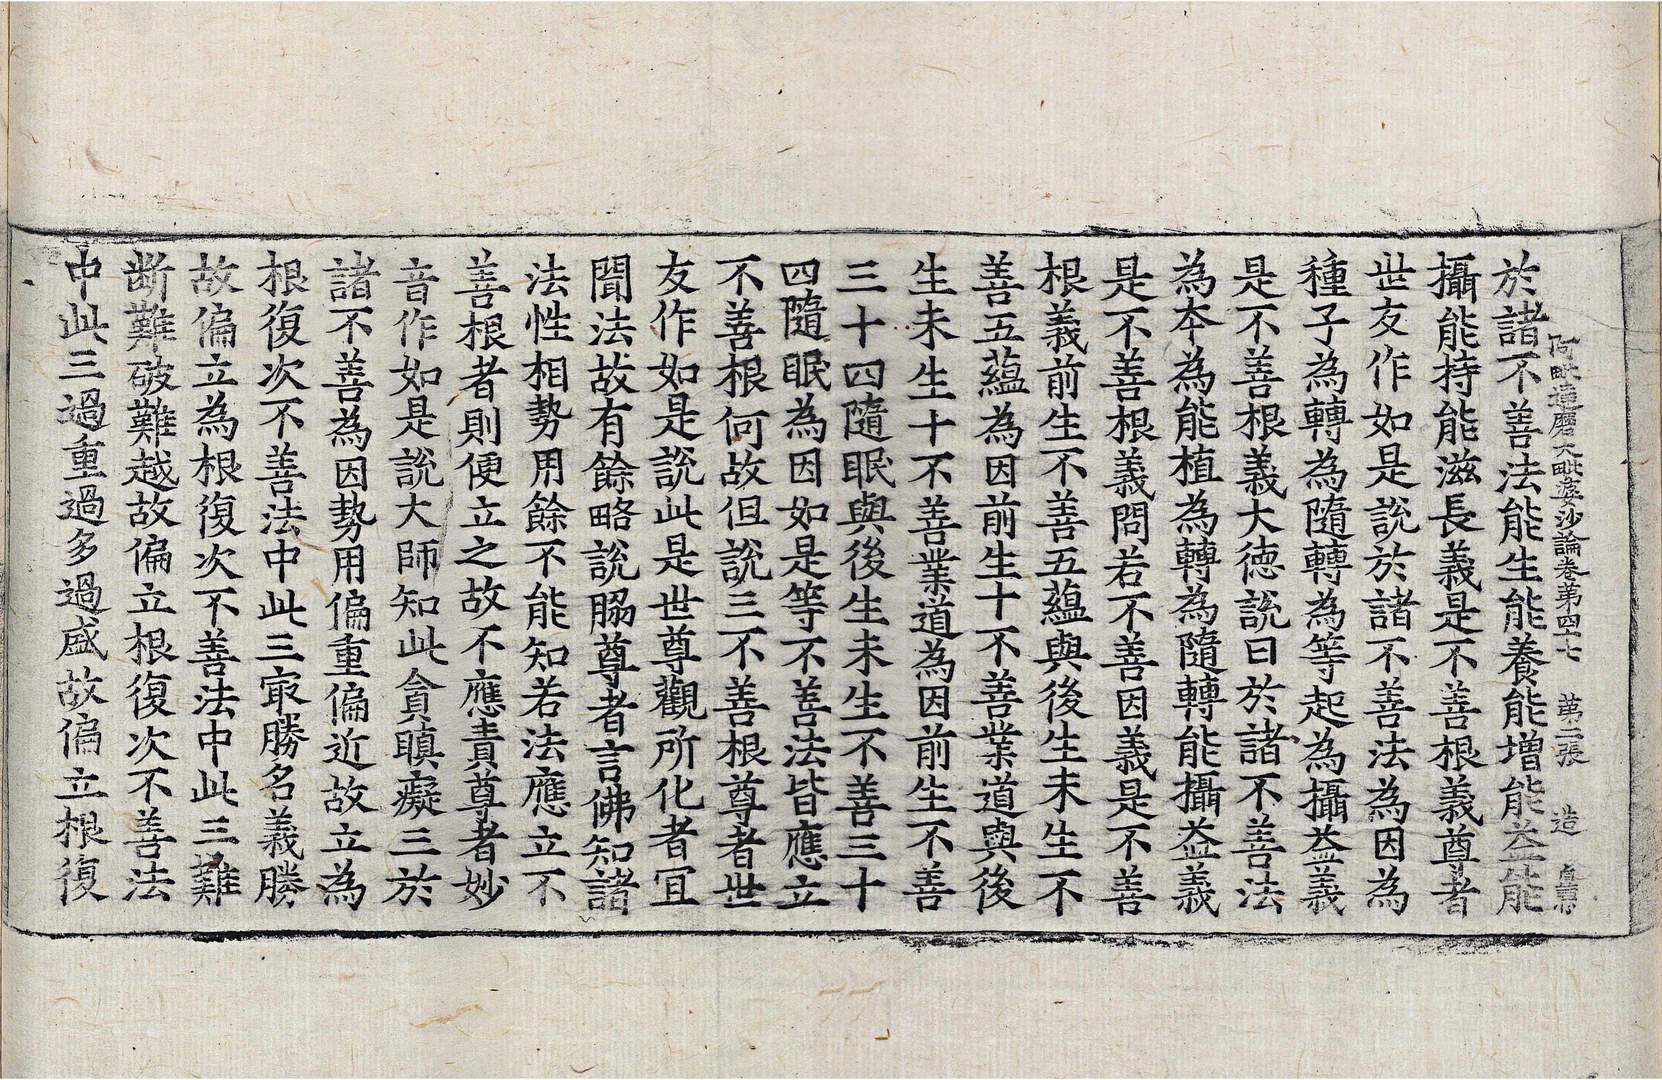 阿毗達磨大毗婆沙論卷第四十七 第二張 造
於諸不善法能生能養能增能益能
攝能持能滋長義是不善根義尊者
世友作如是說於諸不善法為因為
種子為轉為隨轉為等起為攝益義
是不善根義大德說曰於諸不善法
為本為能植為轉為隨轉能攝益義
是不善根義問若不善因義是不善
根義前生不善五蘊與後生未生不
善五蘊為因前生十不善業道與後
生未生十不善業道為因前生不善
三十四隨眠與後生未生不善三十
四隨眠為因如是等不善法皆應立
不善根何故但說三不善根尊者世
友作如是說此是世尊觀所化者冝
聞法故有餘略說脇尊者言佛知諸
法性相勢用餘不能知若法應立不
善根者則便立之故不應責尊者妙
音作如是說大師知此貪瞋癡三於
諸不善為因勢用偏重偏近故立為
根復次不善法中此三㝡勝名義勝
故偏立為根復次不善法中此三難
断難破難越故偏立根復次不善法
中此三過重過多過盛故偏立根復